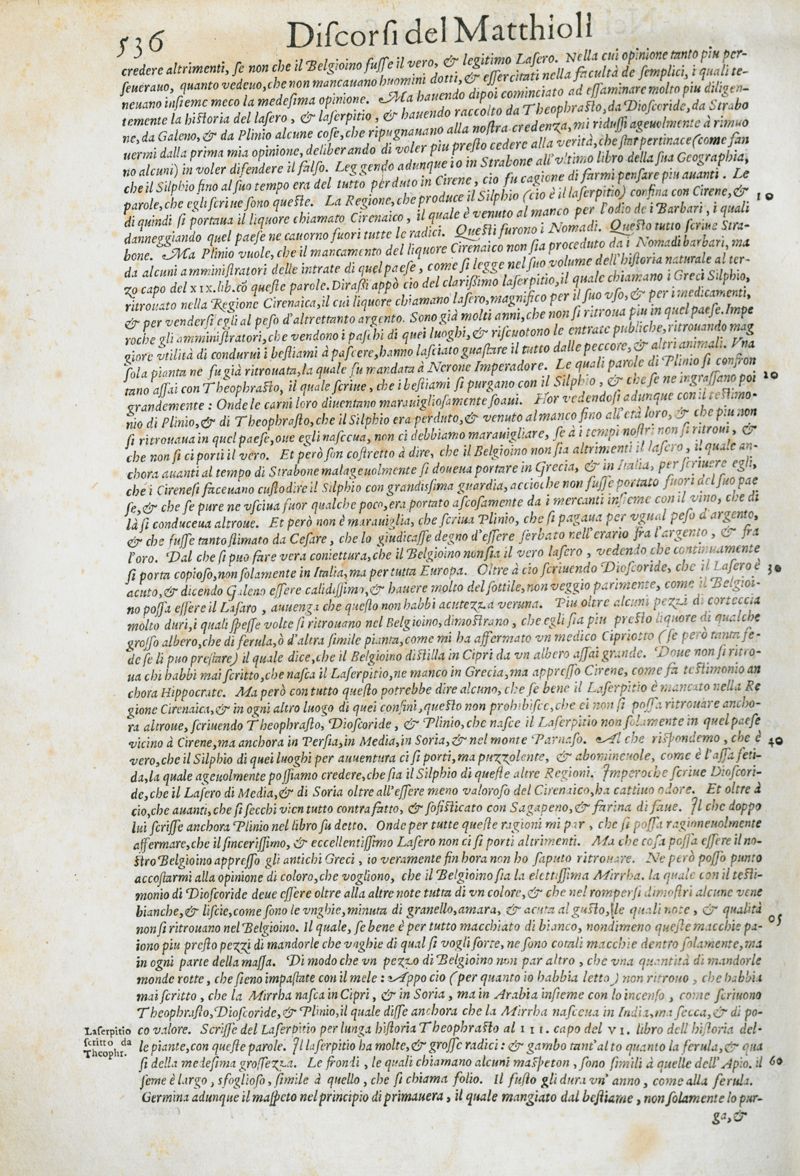 536
Discorsi del Matthioli
credere altrimenti, se non che il Belgioino fusse il vero, & legitimo Lasero. Nella cui opinione tanto piu per-
seuerauo, quanto vedeuo, che non mancauano huomini dotti, & essercitati nella facultà de semplici, i quali te-
neuano insieme meco la medesima opinione. Ma hauendo dipoi cominciato ad essaminare molto piu diligen-
temente la historia del lasero, & laserpitio, & hauendo raccolto da Theophrasto, da Dioscoride, da Strabo
ne, da Galeno, & da Plinio alcune cose, che ripugnauano alla nostra credenza, mi ridussi ageuolmente à rimuo
uermi dalla prima mia opinione, deliberando di voler piu presto cedere alla verità, che star pertinace (come fan
no alcuni) in voler difendere il falso. Leggendo adunque io in Strabone all'vltimo libro della sua Geographia,
che il Silphio fino al suo tempo era del tutto perduto in Cirene, cio fu cagione di farmi pensare piu auanti. Le
parole, che egli scriue sono queste. La Regione, che produce il Silphio (cio è il laserpitio) confina con Cirene, &
10
di quindi si portaua il liquore chiamato Cirenaico, il quale è venuto al manco per l'odio de i Barbari, i quali
danneggiando quel paese ne cauorno fuori tutte le radici. Questi furono i Nomadi. Questo tutto scriue Stra-
bone. Ma Plinio vuole, che il mancamento del liquore Cirenaico non sia proceduto da i Nomadi barbari, ma
da alcuni amministratori delle intrate di quel paese, come si legge nel suo volume dell'historia naturale al ter-
zo capo del xix. lib. cõ queste parole. Dirassi appò cio del clarissimo laserpitio, il quale chiamano i Greci Silphio,
ritrouato nella Regione Cirenaica, il cui liquore chiamano lasero, magnifico per il suo vso, & per i medicamenti,
& per vendersi egli al peso d'altrettanto argento. Sono già molti anni, che non si ritroua piu in quel paese. Impe
roche gli amministratori, che vendono i paschi di quei luoghi, & riscuotono le entrate publiche, ritrouando mag
giore vtilità di condurui i bestiami à pascere, hanno lasciato guastare il tutto dalle peccore, & altri animali. Vna
sola pianta ne fu già ritrouata, la quale fu mandata à Nerone Imperadore. Le quali parole di Plinio si confron
tano assai con Theophrasto, il quale scriue, che i bestiami si purgano con il Silphio, & che se ne ingrassano poi
20
grandemente: Onde le carni loro diuentano marauigliosamente soaui. Hor vedendosi adunque con il testimo-
nio di Plinio, & di Theophrasto, che il Silphio era perduto, & venuto al manco fino all'età loro, & che piu non
si ritrouaua in quel paese, oue egli nasceua, non ci debbiamo marauigliare, se à i tempi nostri non si ritroui, &
che non si ci porti il vero. Et però son costretto à dire, che il Belgioino non sia altrimenti il lasero, il quale an-
chora auanti al tempo di Strabone malageuolmente si doueua portare in Grecia, & in Italia, per scriuere egli,
che i Cirenesi faceuano custodire il Silphio con grandissima guardia, accioche non fusse portato fuori del suo pae
se, & che se pure ne vsciua fuor qualche poco, era portato ascosamente da i mercanti insieme con il vino, che di
là si conduceua altroue. Et però non è marauiglia, che scriua Plinio, che si pagaua per vgual peso d'argento,
& che fusse tanto stimato da Cesare, che lo giudicasse degno d'essere serbato nell'erario fra l'argento, & fra
l'oro. Dal che si puo fare vera coniettura, che il Belgioino non sia il vero lasero, vedendo che continuamente
si porta copioso, non solamente in Italia, ma per tutta Europa. Oltre à cio scriuendo Dioscoride, che il Lasero è
30
acuto, & dicendo Galeno essere calidissimo, & hauere molto del sottile, non veggio parimente, come il Belgioi-
no possa essere il Lasaro, auuenga che questo non habbi acutezza veruna. Piu oltre alcuni pezzi di corteccia
molto duri, i quali spesse volte si ritrouano nel Belgioino, dimostrano, che egli sia piu presto liquore di qualche
grosso albero, che di ferula, ò d'altra simile pianta, come mi ha affermato vn medico Cipriotto (se però tanta fe-
de se li puo prestare) il quale dice, che il Belgioino distilla in Cipri da vn albero assai grande. Doue non si ritro-
ua chi habbi mai scritto, che nasca il Laserpitio, ne manco in Grecia, ma appresso Cirene, come fa testimonio an
chora Hippocrate. Ma però con tutto questo potrebbe dire alcuno, che se bene il Laserpitio è mancato nella Re
gione Cirenaica, & in ogni altro luogo di quei confini, questo non prohibisce, che ei non si possa ritrouare ancho-
ra altroue, scriuendo Theophrasto, Dioscoride, & Plinio, che nasce il Laserpitio non solamente in quel paese
vicino à Cirene, ma anchora in Persia, in Media, in Soria, & nel monte Parnaso. Al che rispondemo, che è
40
vero, che il Silphio di quei luoghi per auuentura ci si porti, ma puzzolente, & abomineuole, come è l'assa feti-
da, la quale ageuolmente possiamo credere, che sia il Silphio di queste altre Regioni. Imperoche scriue Dioscori-
de, che il Lasero di Media, & di Soria oltre all'essere meno valoroso del Cirenaico, ha cattiuo odore. Et oltre à
cio, che auanti, che si secchi vien tutto contrafatto, & sofisticato con Sagapeno, & farina di faue. Il che doppo
lui scrisse anchora Plinio nel libro su detto. Onde per tutte queste ragioni mi par, che si possa ragioneuolmente
affermare, che il sincerissimo, & eccellentissimo Lasero non ci si porti altrimenti. Ma che cosa possa essere il no-
stro Belgioino appresso gli antichi Greci, io veramente fin hora non ho saputo ritrouare. Ne però posso punto
accostarmi alla opinione di coloro, che vogliono, che il Belgioino sia la elettissima Mirrha. la quale con il testi-
monio di Dioscoride deue essere oltre alla altre note tutta di vn colore, & che nel rompersi dimostri alcune vene
bianche, & liscie, come sono le vnghie, minuta di granello, amara, & acuta al gusto, le quali note, & qualità
05
non si ritrouano nel Belgioino. Il quale, se bene è per tutto macchiato di bianco, nondimeno queste macchie pa-
iono piu presto pezzi di mandorle che vnghie di qual si vogli sorte, ne sono cotali macchie dentro solamente, ma
in ogni parte della massa. Di modo che vn pezzo di Belgioino non par altro, che vna quantità di mandorle
monde rotte, che sieno impastate con il mele: Appo cio (per quanto io habbia letto) non ritrouo, che habbia
mai scritto, che la Mirrha nasca in Cipri, & in Soria, ma in Arabia insieme con lo incenso, come scriuono
Theophrasto, Dioscoride, & Plinio, il quale disse anchora che la Mirrha nasceua in India, ma secca, & di po-
co valore. Scrisse del Laserpitio per lunga historia Theophrasto al III. capo del VI. libro dell'historia del-
Laserpitio
scritto da
Theophr.
le piante, con queste parole. Il laserpitio ha molte, & grosse radici: & gambo tant'alto quanto la ferula, & qua
si della medesima grossezza. Le frondi, le quali chiamano alcuni maspeton, sono simili à quelle dell'Apio. il
60
seme è largo, sfoglioso, simile à quello, che si chiama folio. Il fusto gli dura vn'anno, come alla ferula.
Germina adunque il maspeto nel principio di primauera, il quale mangiato dal bestiame, non solamente lo pur-
ga, &